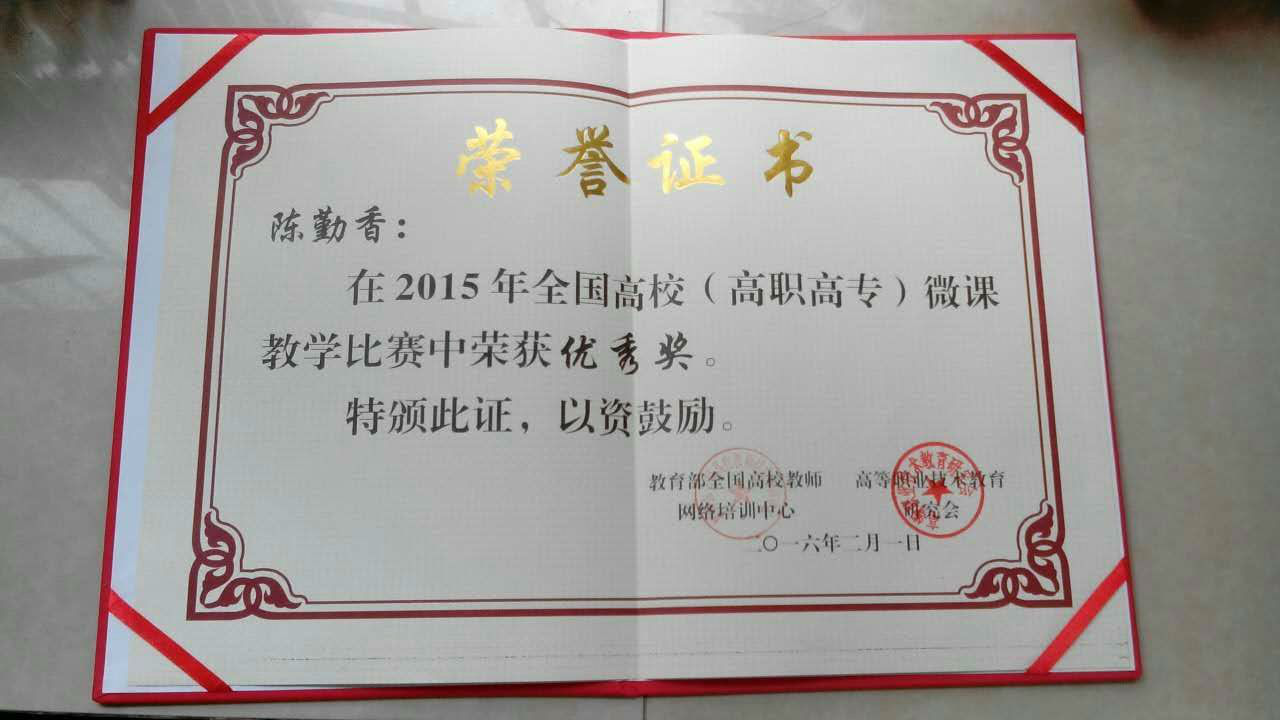 荣誉证书
陈勤香：
在2015年全国高校（高职高专）微课
教学比赛中荣获优秀奖。
特颁此证，以资鼓励。
教育部全国高校教师 高等职业技术教育
网络培训中心 研究会
二〇一六年二月一日